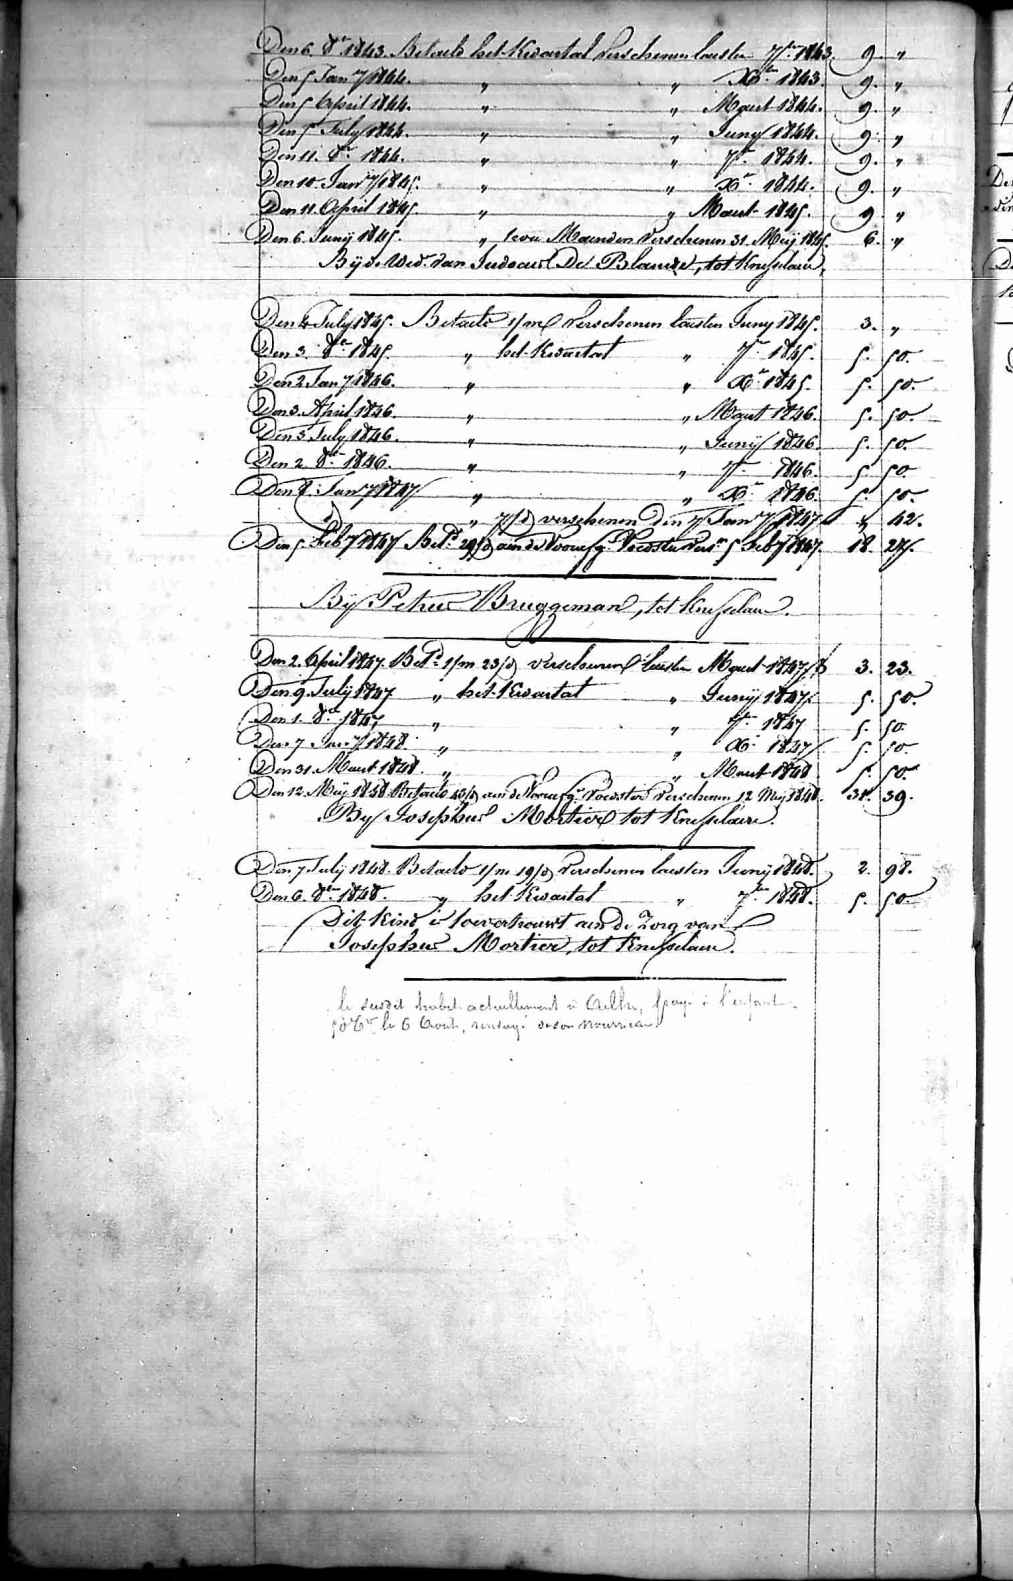 Den 6. 8re 1843. Betaeld het Kwartal verschenen laesten 7re 1843. 9. "
Den 5 Jany 1844. " " Xre 1843. 9. "
Den 5 April 1844. " " Maert 1844. 9. "
Den 5 July 1844. " " Juny 1844. 9. "
Den 11. 8re 1844. " " 7re 1844. 9. "
Den 10 Jany 1845. " " Xre 1844. 9. "
Den 11. April 1845. " " Maert 1845. 9. "
Den 6. Junij 1845. " twee Maenden verschenen 31. Meij 1845. 6. "
Bij de Wed. van Judocus De Blauwe, tot Knesselaere,
Den 4 July 1845. Betaeld 1/m verschenen laesten Juny 1845. 3. "
Den 3. 8re 1845. " het Kwartal " 7re 1845. 5. 50.
Den 2 Jany 1846. " " Xre 1845. 5. 50.
Den 3. April 1846. " " Maert 1846. 5. 50.
Den 3 July 1846. " " Junij 1846. 5. 50.
Den 2 8re 1846. " " 7re 1846. 5. 50
Den 8. Jany 1847 " " Xre 1846. 5. 50.
" 7/d verschenen Den 7 Jany 1847 " 42.
Den 5. Feby 1847 Betd 29/d aen de Voorsz. Voedster vers. 5 Feby 1847. 18. 24.
Bij Petrus Bruggeman, tot Knesselaere.
Den 2. April 1847. Betd 1/m 23/d verschenen laesten Maert 1847 3. 23.
Den 9. Julij 1847 " het Kwartal " Junij 1847. 5. 50.
Den 1. 8re 1847 " " 7re 1847 5. 50.
Den 7 Jany 1848. " " Xre 1847 5. 50
Den 31. Maert 1848. " " Maert 1848 5. 50.
Den 12. Meij 1848 Betaeld 43/d aen de Voorsz. Voedster verschenen 12 Meij 1848. 31. 39.
Bij Josephus Mortier tot Knesselaere.
Den 7 Julij 1848. Betaeld 1/m 19/d verschenen laesten Junij 1848. 2. 98.
Den 6. 8re 1848. " het Kwartal " 7re 1848. 5. 50.
Dit kind is toevertrouwt aen de Zorg van
Josephus Mortier, tot Knesselaere.
le susdit habet actuellement à Aeltre, à l'enfant
le 6 Août, de son nourricier